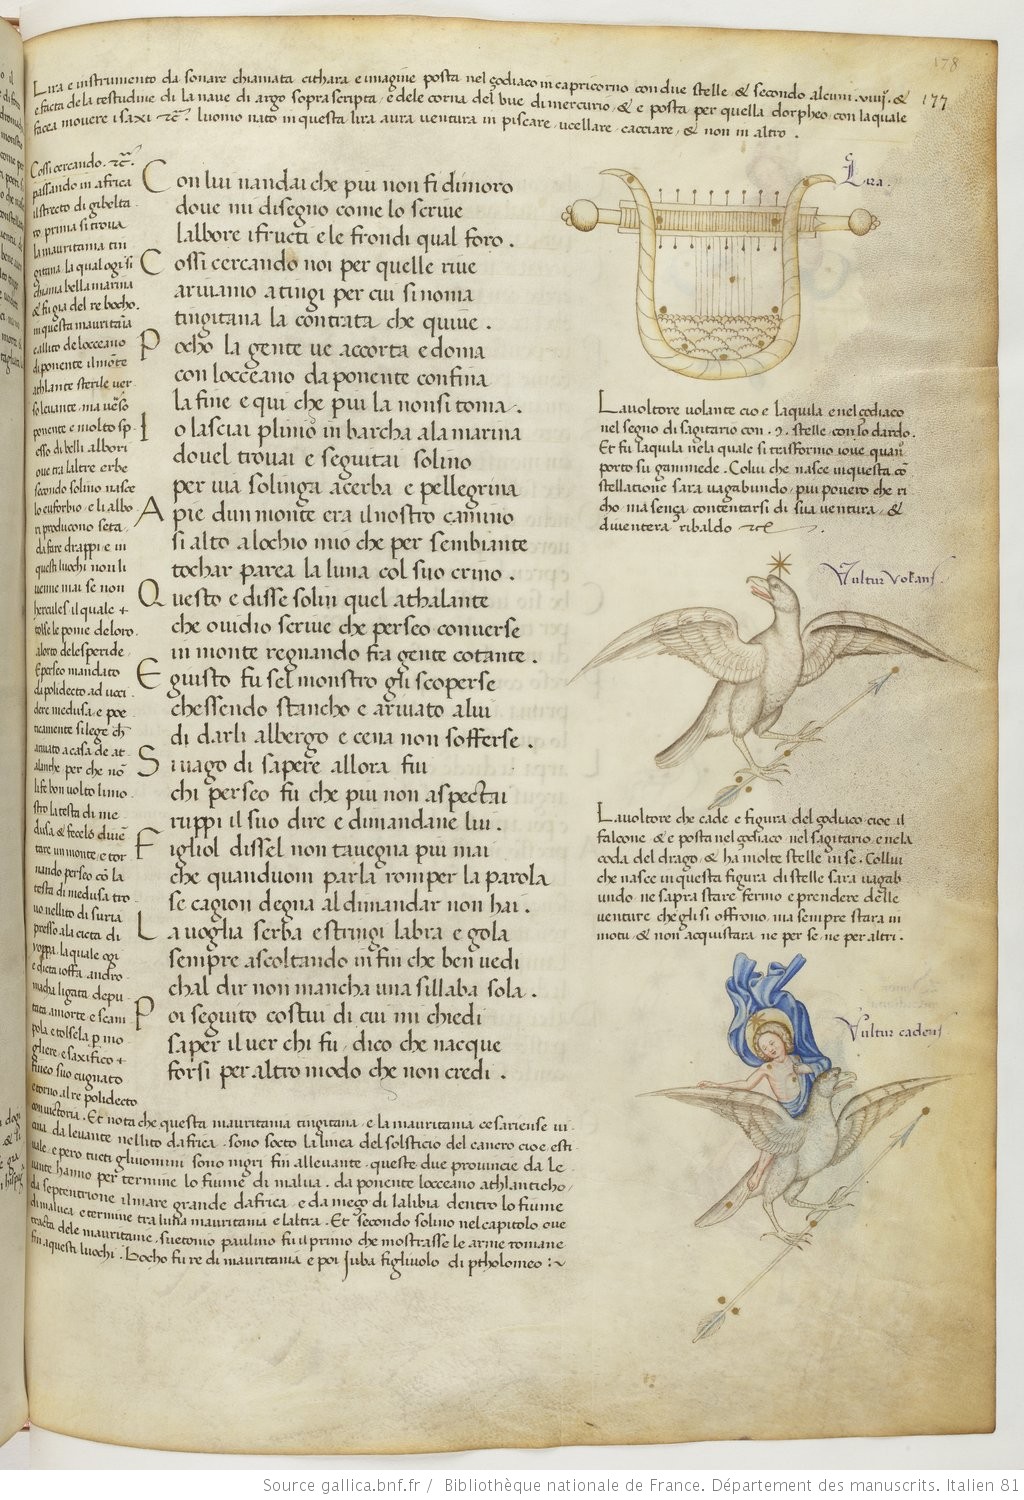 178
177
Lira e instrumento da sonare chiamata cithara e imagine posta nel zodiaco in capricorno con due stelle & secondo alcuni .viiij. &
e facta de la testudine di la naue di argo soprascripta, e dele corna del bue di mercurio, & e posta per quella dorpheo, con laquale
facea mouere i saxi etc. luomo nato in questa lira aura uentura in piscare, ucellare, cacciare, & non in altro .
Lira.
Cossi cercando. etc.
passando in africa
il strecto di gibelta
ro prima si troua
la mauritania tin
gitana la qual ogi si
chiama bella marina
& fu gia del re bocho.
in questa mauritãia
callito de locceano
di ponente il mõte
athlante sterile uer
so leuante, ma uerso
ponente e molto sp
esso di belli albori
oue tra laltre erbe
secondo solino nasce
lo euforbio, e li albo
ri producono seta,
da fare drappi, e in
questi luochi non li
uenne mai se non
hercules il quale
tolse le pome deloro
alorto delesperide
E perseo mandato
da polidecto ad ucci
dere medusa, e poe
ticamente si lege ch̃
ariuato a casa de at
alante per che nõ
li fe bon uolto li mo
stro la testa di me
dusa & fecelo diuẽ
tare un monte, e tor
nando perseo cõ la
testa di medusa tro
uo nel lito di suria
presso a la cieta di
ioppa, la quale ogi
e dicta ioffa andro
macha ligata depu
tata a morte, e scam
pola e tolsela p mo
gliere, e saxifico
fineo suo cugnato
e torno al re polidecto
con uictoria. Et nota che questa mauritania tingitana, e la mauritania cesariense ui
cina da leuante nel lito dafrica, sono socto la linea del solsticio del cancro cioe esti
uale, e pero tucti gli uomini sono nigri fin alleuante, queste due prouincie da le
uante hanno per termine lo fiume di malua. da ponente locceano athlanticho,
da septentrione il mare grande dafrica, e da mezo di la libia dentro lo fiume
di malua, e termine tra luna mauritania e laltra. Et secondo solino nel capitolo oue
tracta dele mauritanie, suetonio paulino fu il primo che mostrasse le arme romane
fin a questi luochi. Bocho fu re di mauritania e poi Juba figliuolo di ptholomeo :~
Con lui nandai che piu non fi dimoro
doue mi disegno come lo scriue
lalbore i fructi e le frondi qual foro .
Cossi cercando noi per quelle riue
ariuamo a tingi per cui si noma
tingitana la contrata che quiue .
Pocho la gente ue accorta e doma
con locceano da ponente confina
la fine e qui che piu la non si toma .
Io lasciai plinio in barcha a la marina
douel trouai e seguitai solino
per uia solinga acerba e pellegrina
A pie dun monte era il nostro camino
si alto a lochio mio che per sembiante
tochar parea la luna col suo crino .
Questo e disse solin quel athalante
che ouidio scriue che perseo conuerse
in monte regnando fra gente cotante .
E giusto fu sel monstro gli scoperse
chessendo stancho e ariuato a lui
di darli albergo e cena non sofferse .
Si uago di sapere allora fui
chi perseo fu che piu non aspectai
ruppi il suo dire e dimandane lui .
Figliol dissel non tauegna piu mai
che quanduom parla romper la parola
se cagion degna al dimandar non hai .
La uoglia serba e stringi labra e gola
sempre ascoltando in fin che ben uedi
chal dir non mancha una sillaba sola .
Poi seguito costui di cui mi chiedi
saper il uer chi fu, dico che nacque
forsi per altro modo che non credi .
Lauoltore uolante cio e laquila e nel zodiaco
nel segno di sagitario con .9. stelle, con lo dardo.
Et fu laquila nela quale si trasformo ioue quan
porto su ganimede. Colui che nasce in questa cõ
stellatione sara uagabundo, piu pouero che ri
cho ma senza contentarsi di sua uentura, &
diuentera ribaldo etc .
Vultur Volans.
Lauoltore che cade e figura del zodiaco cioe il
falcone, & e posta nel zodiaco nel sagitario, e nela
coda del drago, & ha molte stelle in se. Collui
che nasce in questa figura di stelle sara uagab
undo, ne sapra stare fermo e prendere delle
uenture che gli si offrono, ma sempre stara in
motu, & non acquistara ne per se, ne per altri .
Vultur cadens
Source gallica.bnf.fr / Bibliothèque nationale de France. Département des manuscrits. Italien 81